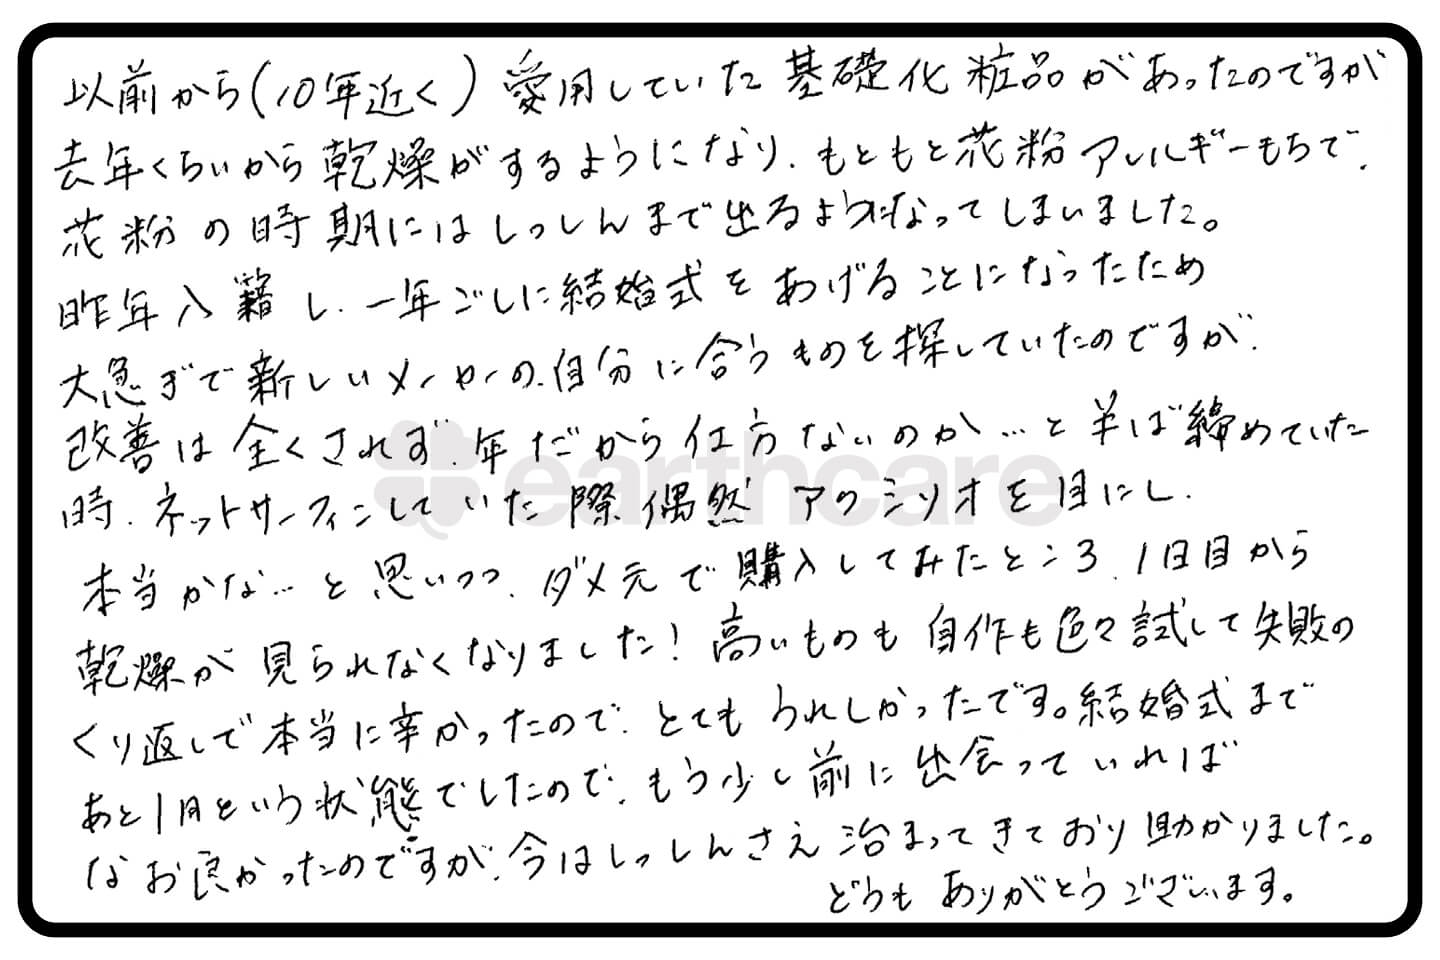 以前から(10年近く)愛用していた基礎化粧品があったのですが
去年くらいから乾燥がするようになり、もともと花粉アレルギーもちで、
花粉の時期にはしっしんまで出るようになってしまいました。
昨年入籍し、一年ごしに結婚式をあげることになったため
大急ぎで新しいメーカーの、自分に合うものを探していたのですが、
改善は全くされず、年だから仕方ないのか…と半ば諦めていた
時、ネットサーフィンしていた際偶然アクシリオを目にし、
本当かな…と思いつつ、ダメ元で購入してみたところ、1日目から
乾燥が見られなくなりました!高いものも自作も色々試して失敗の
くり返しで本当に辛かったので、とてもうれしかったです。結婚式まで
あと1月という状態でしたので、もう少し前に出会っていれば
なお良かったのですが、今はしっしんさえ治まってきており助かりました。
どうもありがとうございます。
earthcare